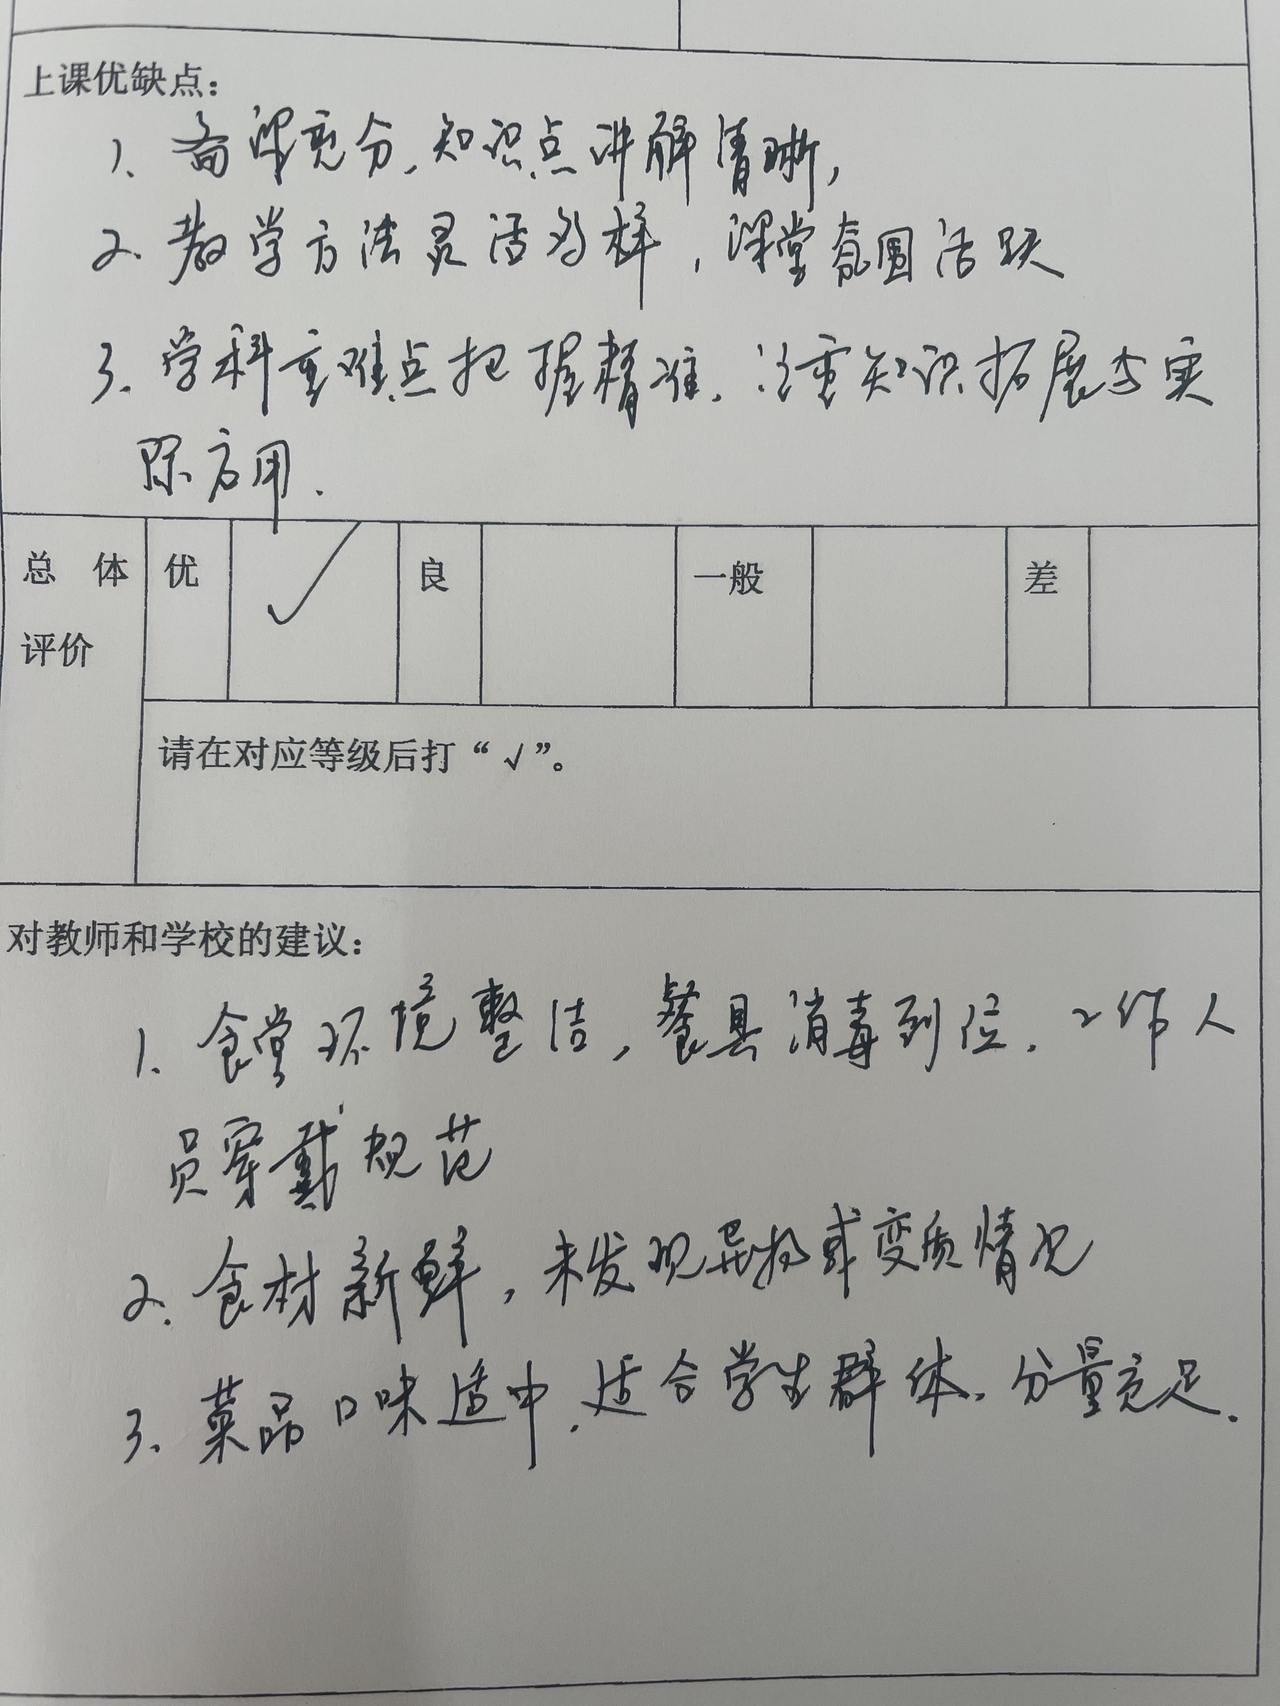 上课优缺点：
1、备课充分，知识点讲解清晰，
2、教学方法灵活多样，课堂氛围活跃
3、学科重难点把握精准，注重知识拓展与实
际应用.
总 体 优 ✓ 良 一般 差
评价
请在对应等级后打“√”。
对教师和学校的建议：
1、食堂环境整洁，餐具消毒到位，工作人
员穿戴规范
2、食材新鲜，未发现异物或变质情况
3、菜品口味适中，适合学生群体，分量充足.